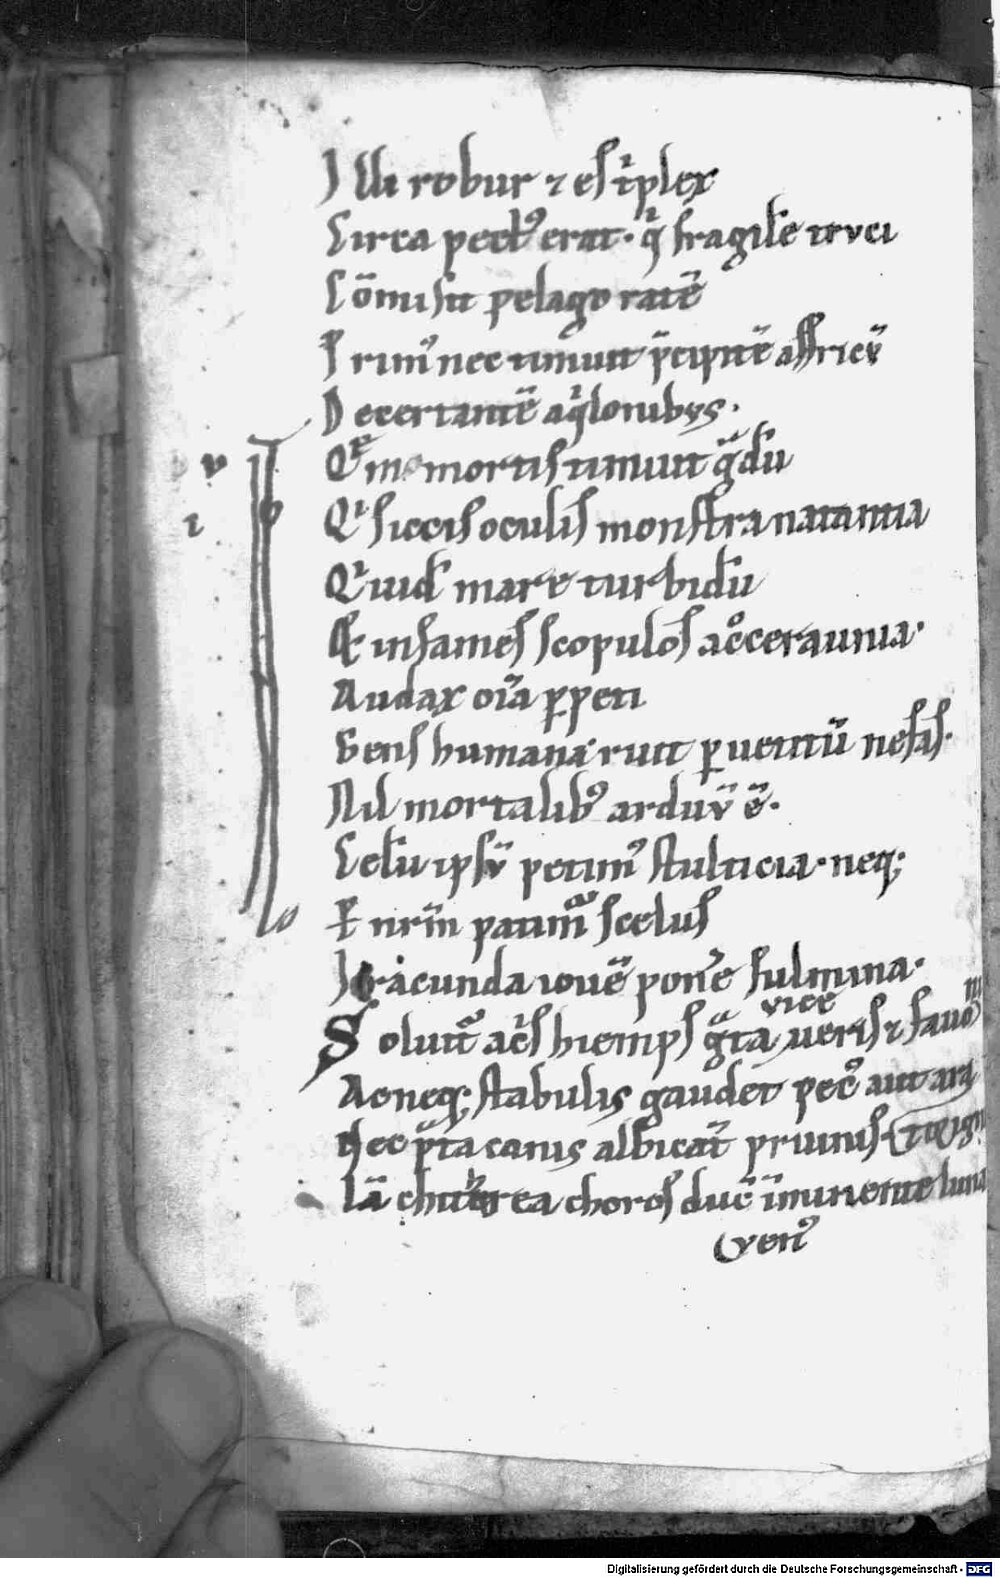 Illi robur ⁊ eſ t͛plex
Circa pect᷒ erat· q̇ fragilē truci
Cōmiſit pelago ratē
Prim᷒ nec timuit p̄cipitē affricū
Decertantē aqͥlonibus·
Qͤm mortiſ timuit gͣdū
Qͥ ſicciſ oculiſ monſtra natantia
Qͥ uid̄ mare turbidū
Et infameſ ſcopuloſ acͦceraunia·
Audax oīa ꝑpeti
Genſ humana ruit ꝑ uetitū nefaſ·
Nil mortalib᷒ arduū ē·
Celū ipſū petim᷒ ſtulticia· neq;
P nrm̄ patimͣ ſcelus
Iracunda iouē pon͛e fulmina·
vice
Soluit͛ ac͛ſ hiempſ gͣta ueriſ ⁊ fauo
ni
Ac neq; ſtabulis gaudet pec᷒ aut ara
Nec pͣta canis albicāt pruinis igni
Iā chiterea choroſ duc̄ īminente luna
ven᷒